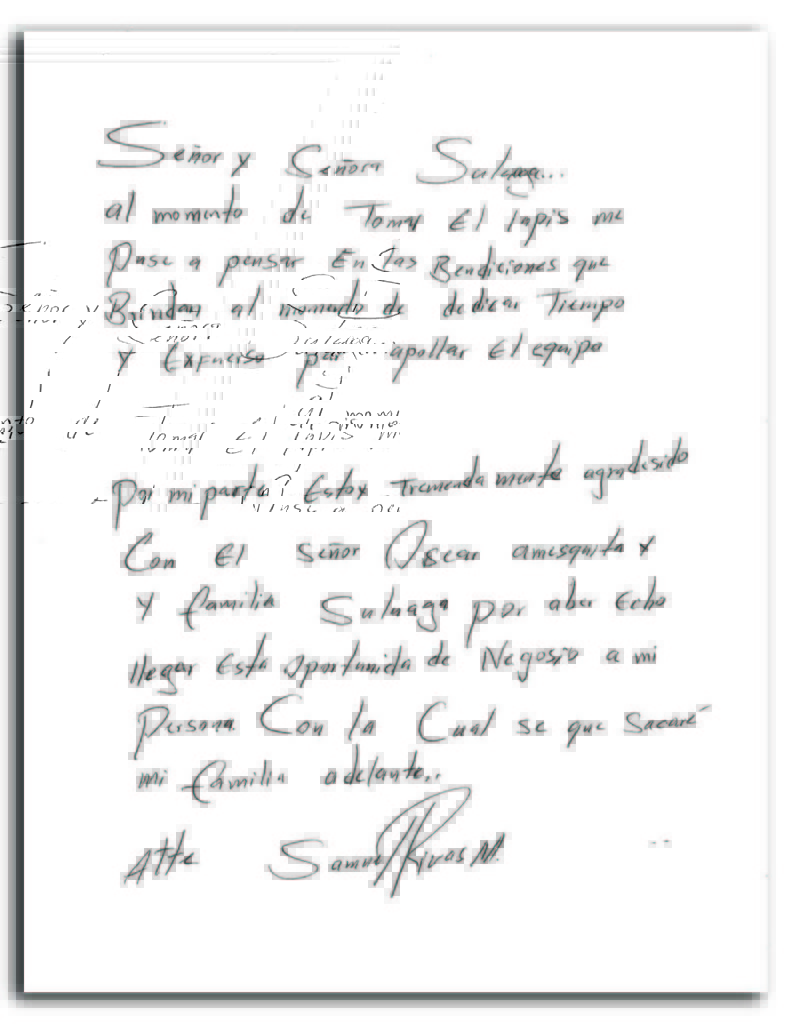 Señor y Señora Suluaga...
al momento de Tomar El lapis me
puse a pensar En las Bendiciones que
Brindan al momento de dedicar Tiempo
y Expuerso por apollar El equipo
Por mi parte Estoy Tremendamente agradesido
Con El Señor Oscar amesquita y
y familia Suluaga por aber Echo
llegar Esta oportunida de Negosio a mi
Persona Con la Cual se que Sacaré
mi familia adelante..
Atte Samuel Rivas M.